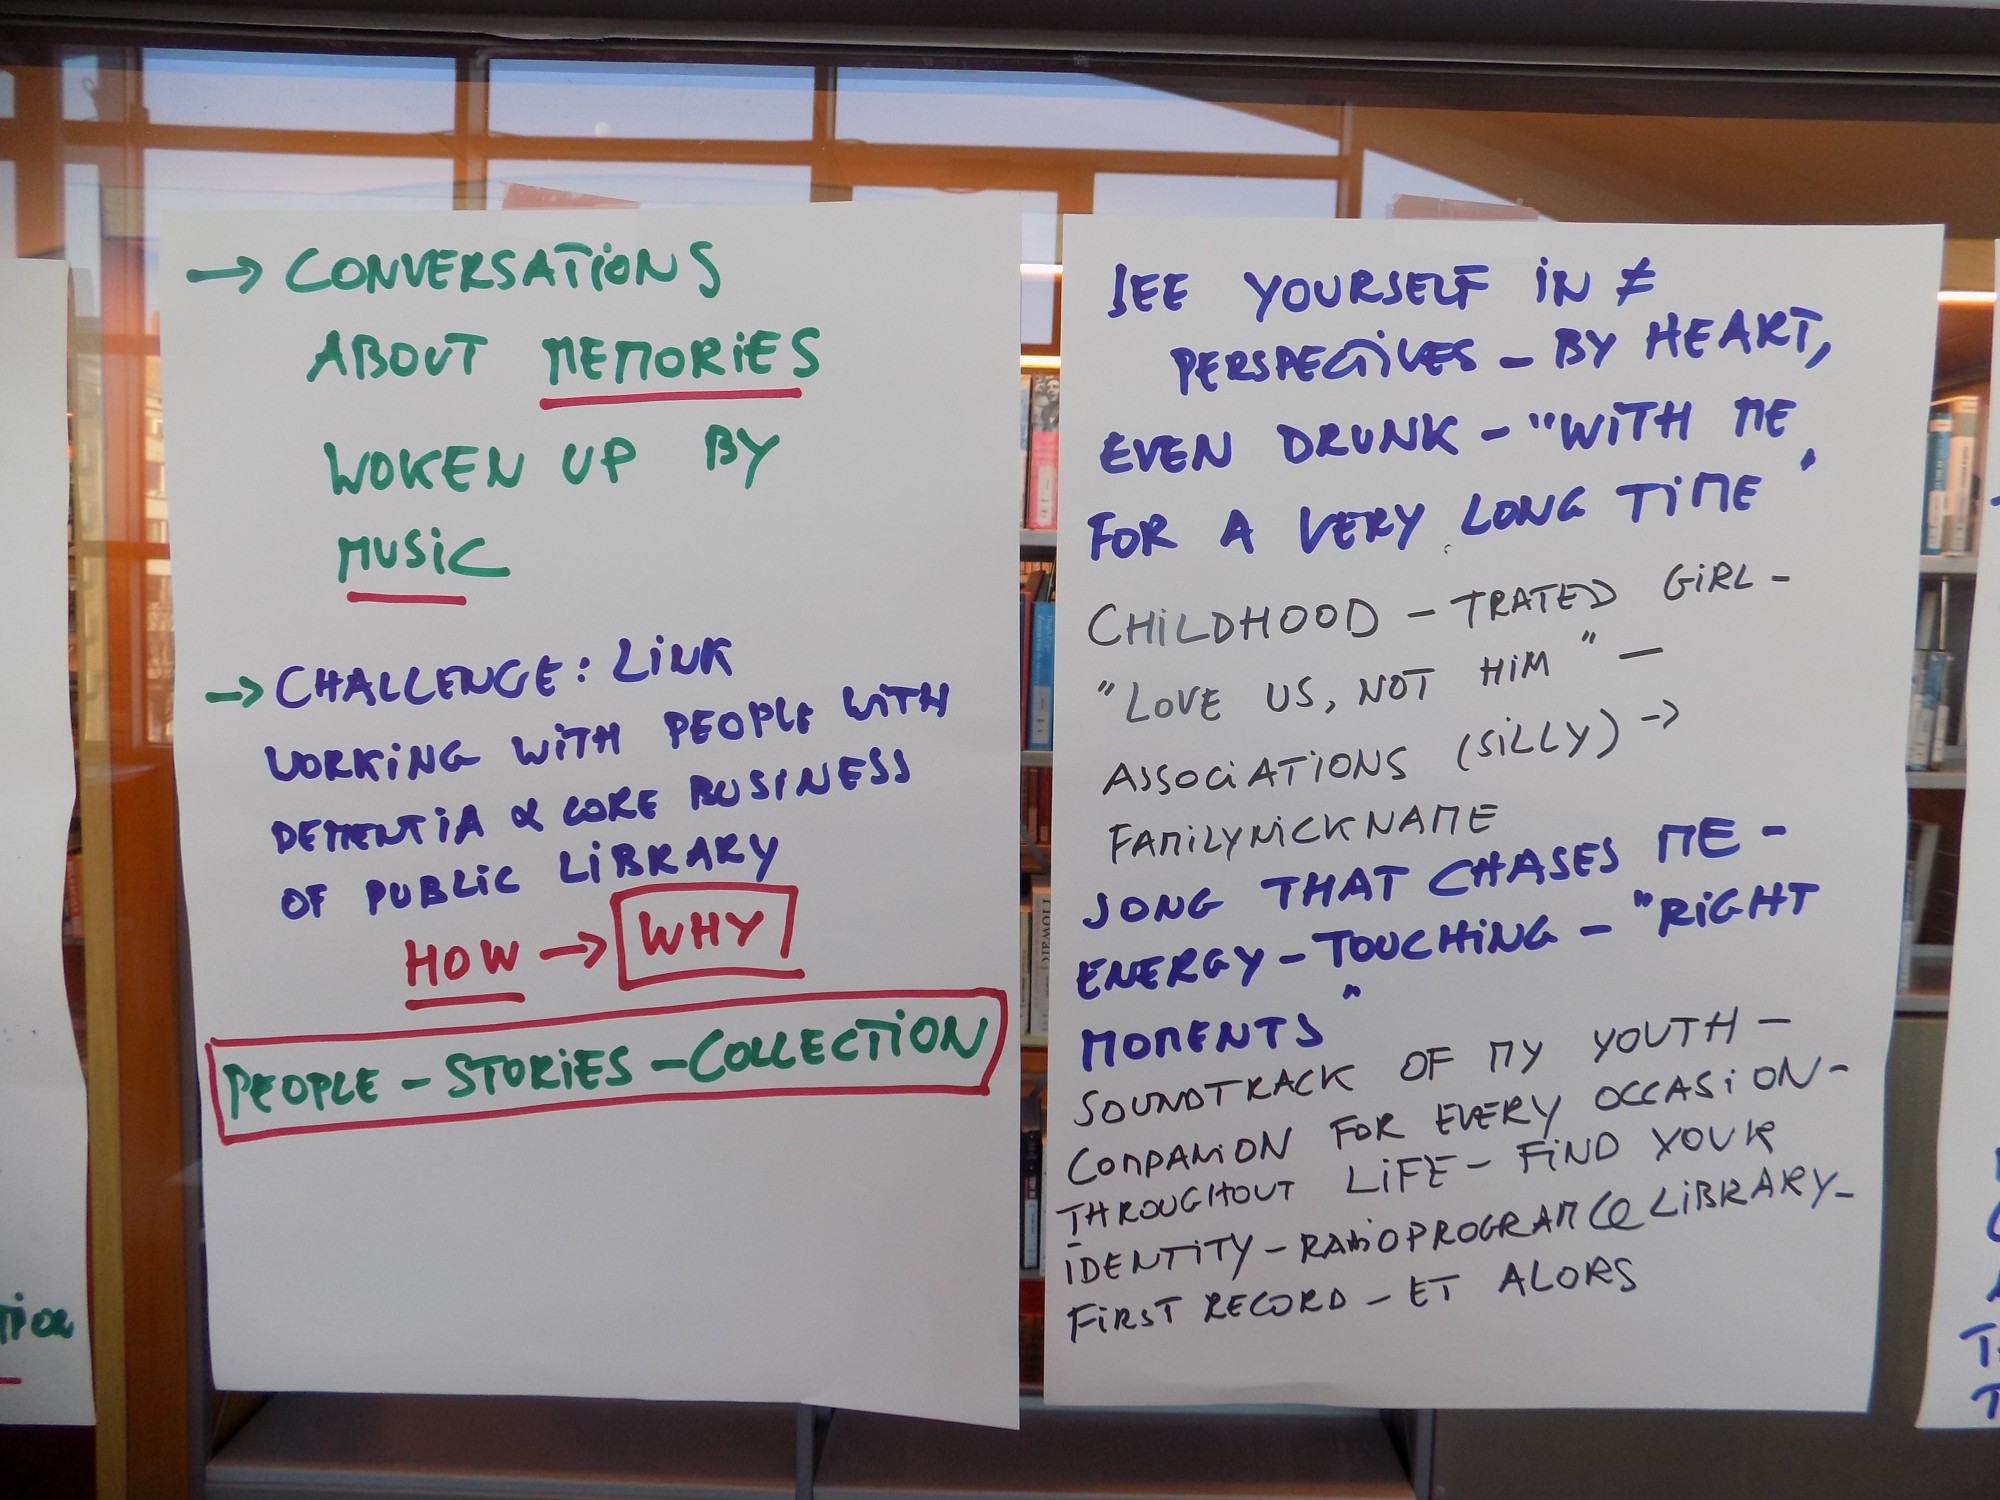 → CONVERSATIONS
ABOUT MEMORIES
WOKEN UP BY
MUSIC
→ CHALLENGE: LINK
WORKING WITH PEOPLE WITH
DEMENTIA & CORE BUSINESS
OF PUBLIC LIBRARY
HOW → WHY
PEOPLE - STORIES - COLLECTION
SEE YOURSELF IN ≠
PERSPECTIVES - BY HEART,
EVEN DRUNK - "WITH ME
FOR A VERY LONG TIME"
CHILDHOOD - TRATED GIRL -
"LOVE US, NOT HIM" -
ASSOCIATIONS (SILLY) →
FAMILYNICKNAME
SONG THAT CHASES ME -
ENERGY - TOUCHING - "RIGHT
MOMENTS"
SOUNDTRACK OF MY YOUTH -
COMPANION FOR EVERY OCCASION -
THROUGHOUT LIFE - FIND YOUR
IDENTITY - RADIOPROGRAM @ LIBRARY -
FIRST RECORD - ET ALORS